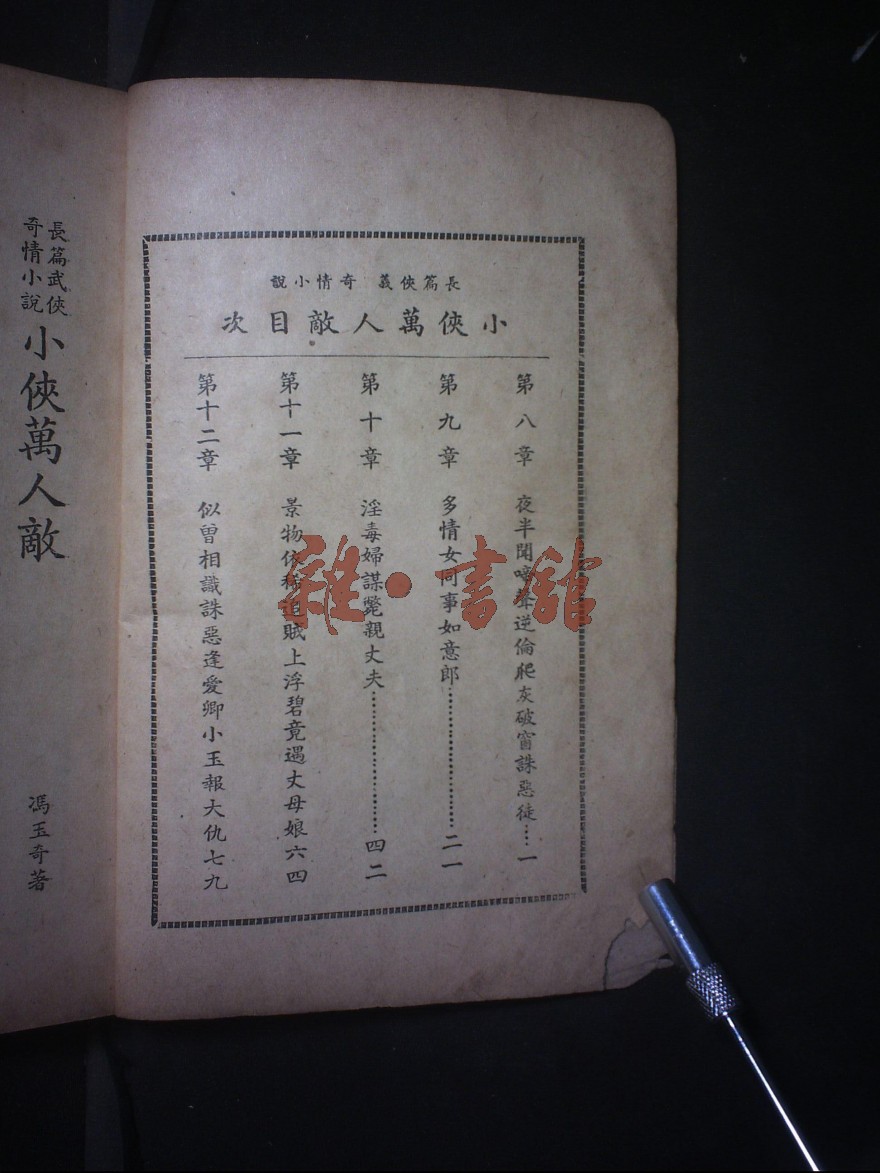 長篇俠義 奇情小說
小俠萬人敵目次
第八章 夜半聞啼聲逆倫爬灰破窗誅惡徒……一
第九章 多情女同事如意郎……………………二一
第十章 淫毒婦謀斃親丈夫……………………四二
第十一章 景物依稀追賊上浮碧竟遇丈母娘六四
第十二章 似曾相識誅惡逢愛卿小玉報大仇七九
長篇武俠
奇情小說
小俠萬人敵
馮玉奇著
雜·書舘